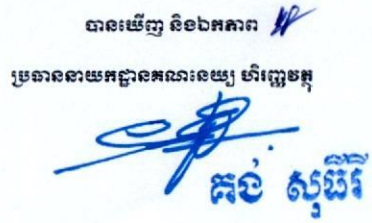 បានឃើញ និងឯកភាព
ប្រធាននាយកដ្ឋានគណនេយ្យ ហិរញ្ញវត្ថុ
គង់ សុធីរី